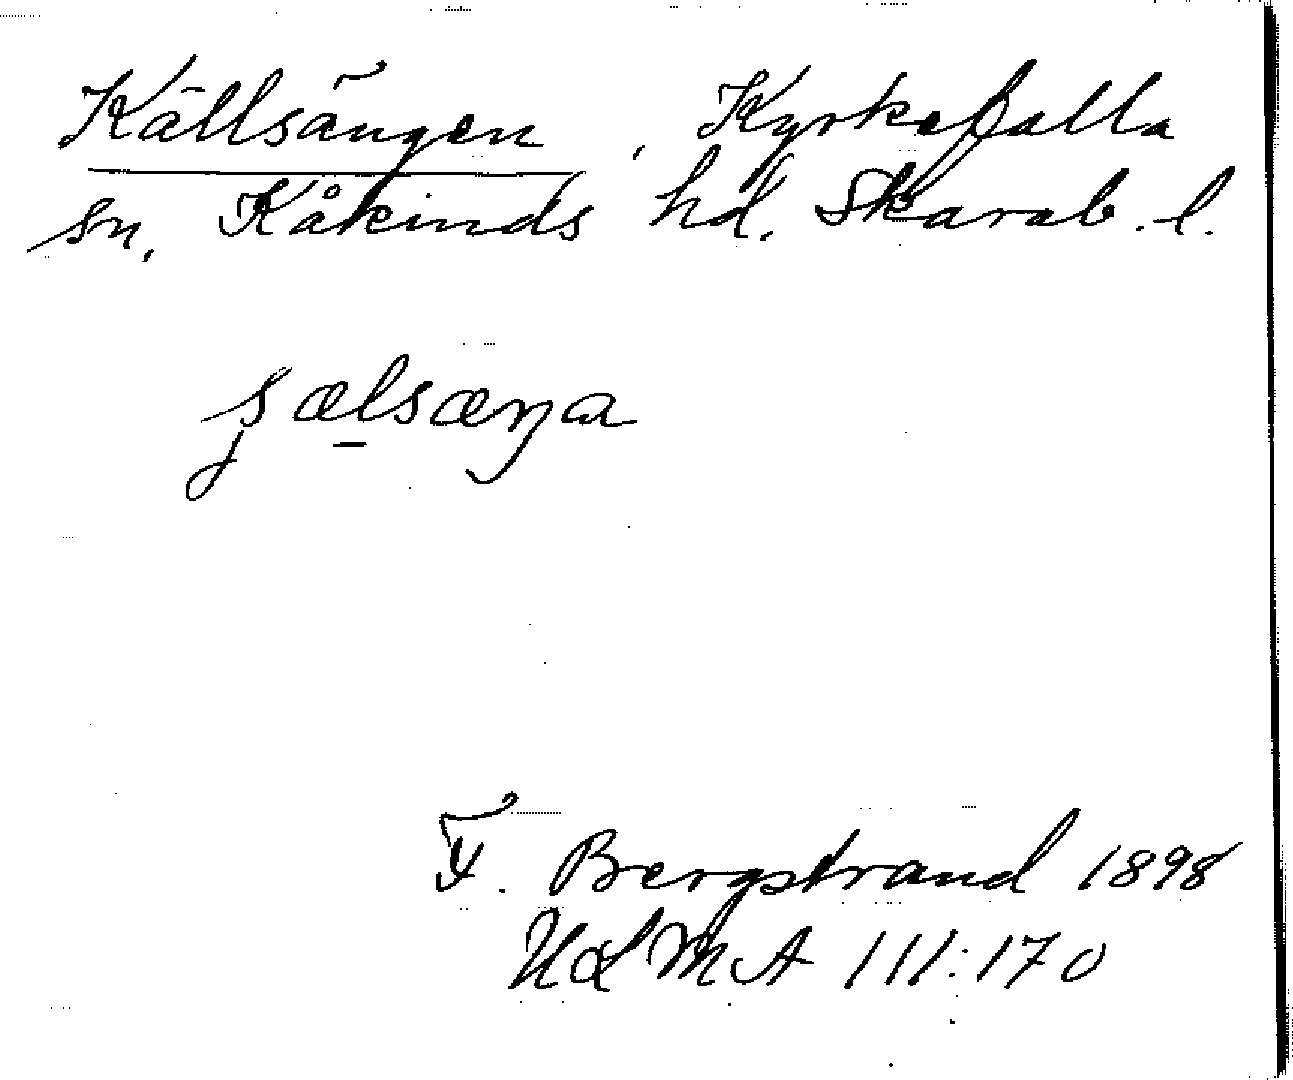 Källsängen, Kyrkefalla
sn, Kåkinds hd. Skarab. l.
F. Bergstrand 1898
ULMA 111:170